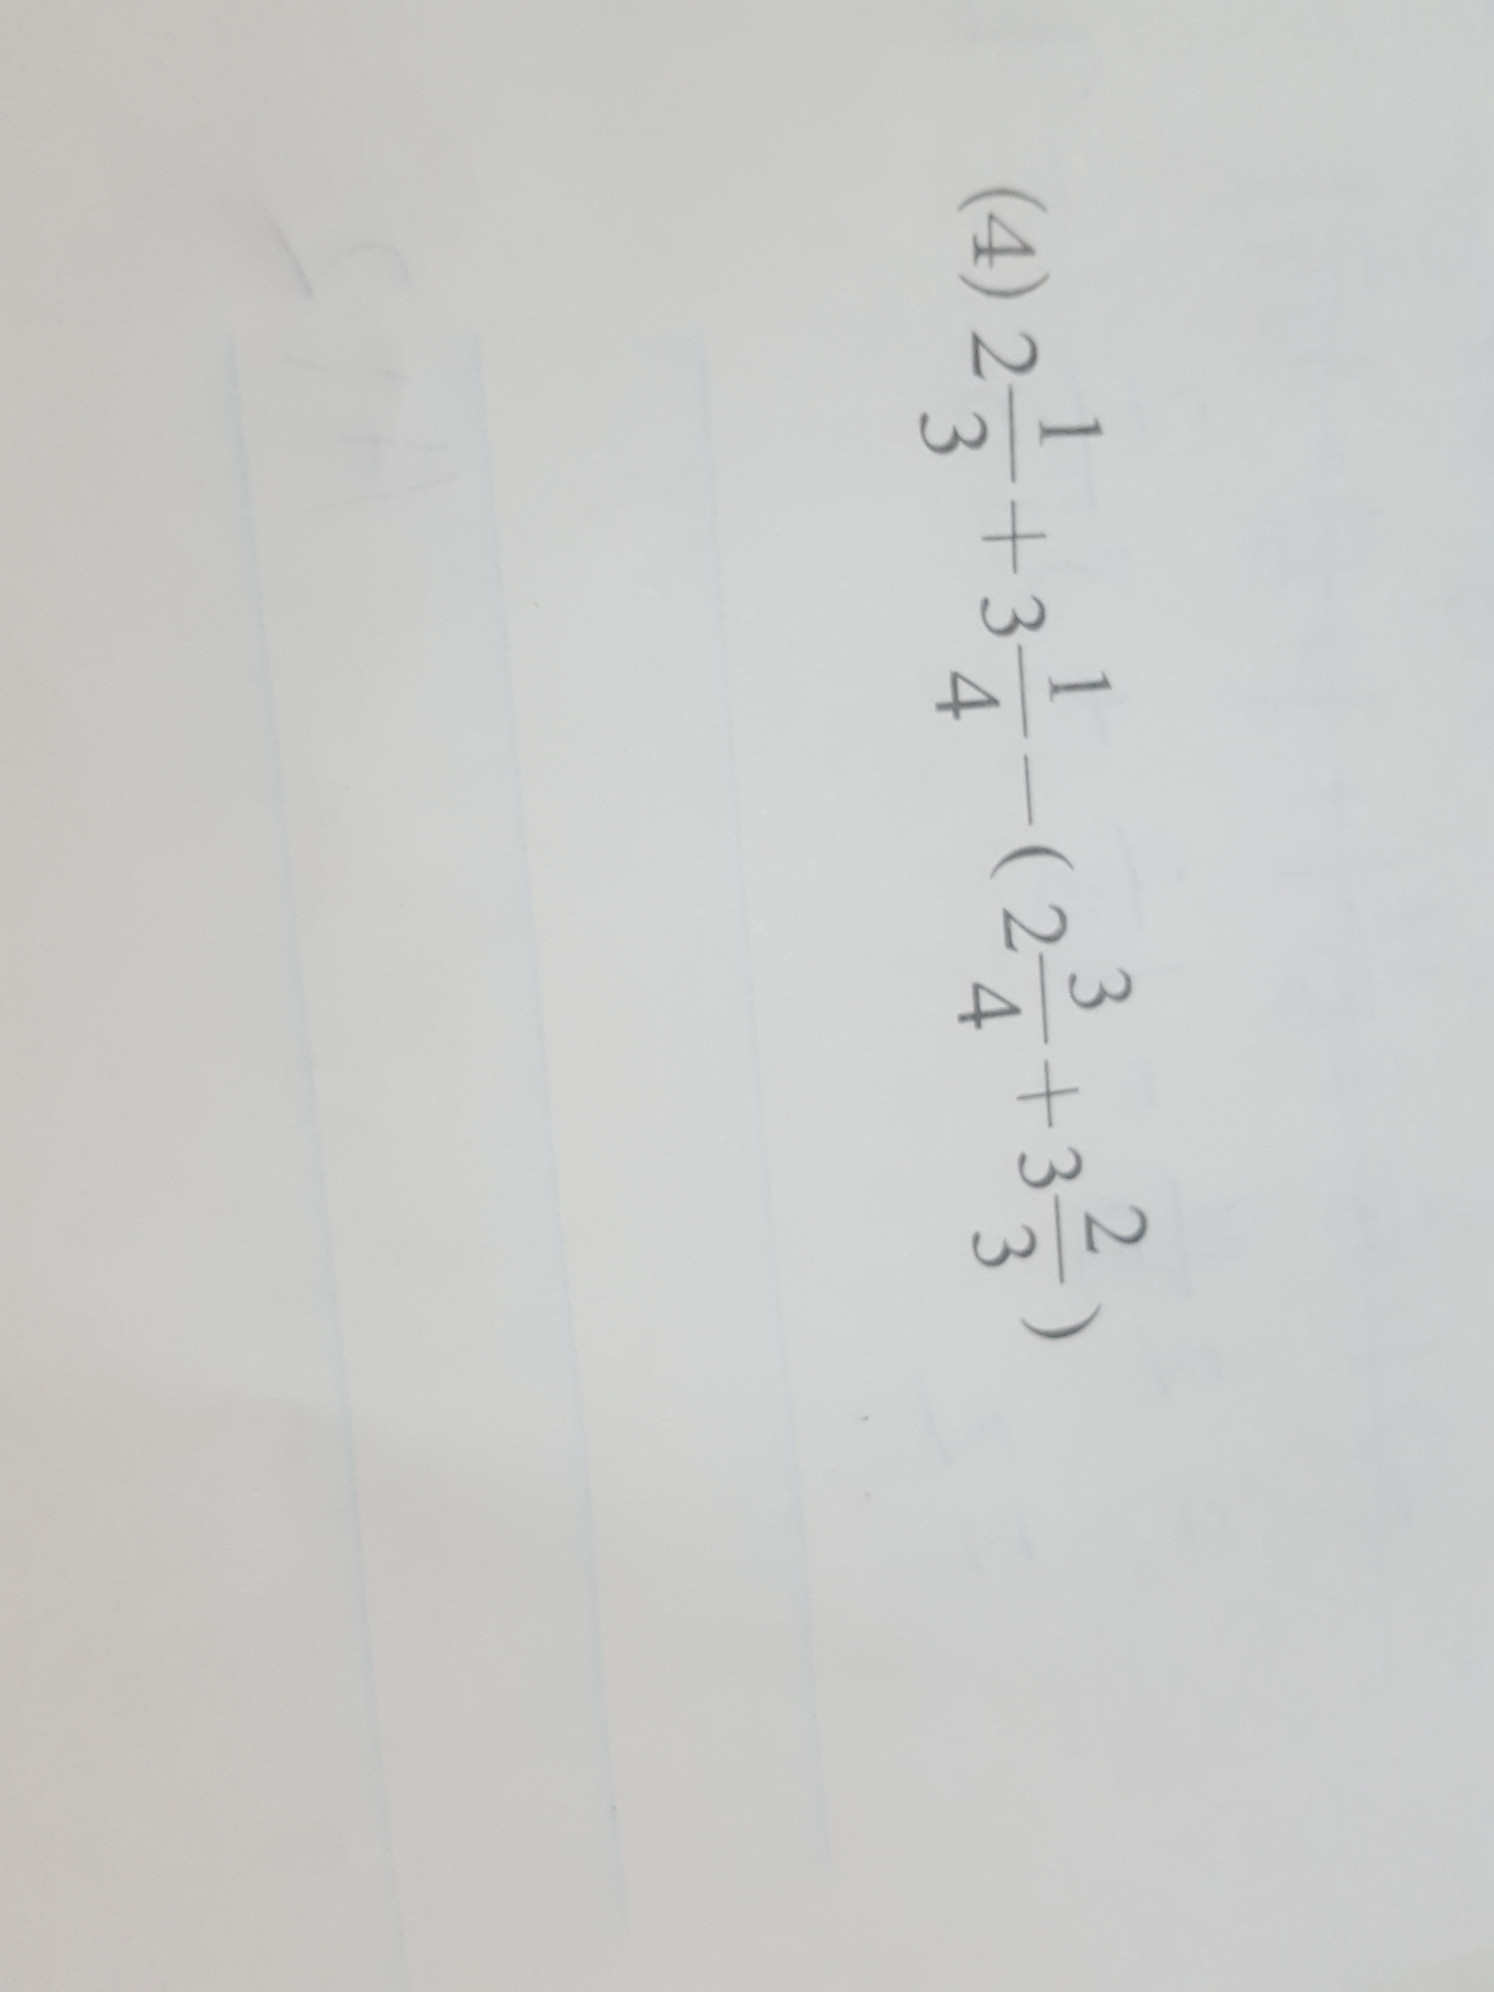 (4) 2 1/3 + 3 1/4 − (2 3/4 + 3 2/3)